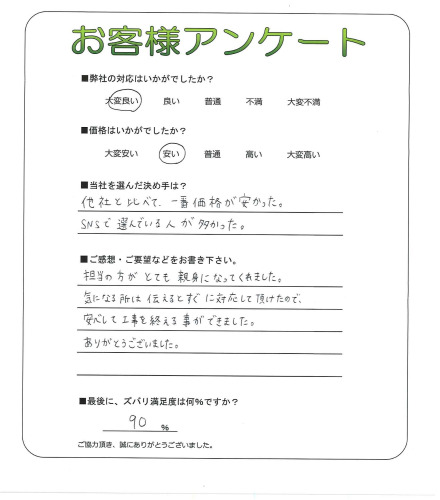 お客様アンケート
■弊社の対応はいかがでしたか？
大変良い 良い 普通 不満 大変不満
■価格はいかがでしたか？
大変安い 安い 普通 高い 大変高い
■当社を選んだ決め手は？
他社と比べて、一番価格が安かった。
SNSで選んでいる人が多かった。
■ご感想・ご要望などをお書き下さい。
担当の方がとても親身になってくれました。
気になる所は伝えるとすぐに対応して頂けたので、
安心して工事を終える事ができました。
ありがとうございました。
■最後に、ズバリ満足度は何%ですか？
90 %
ご協力頂き、誠にありがとうございました。